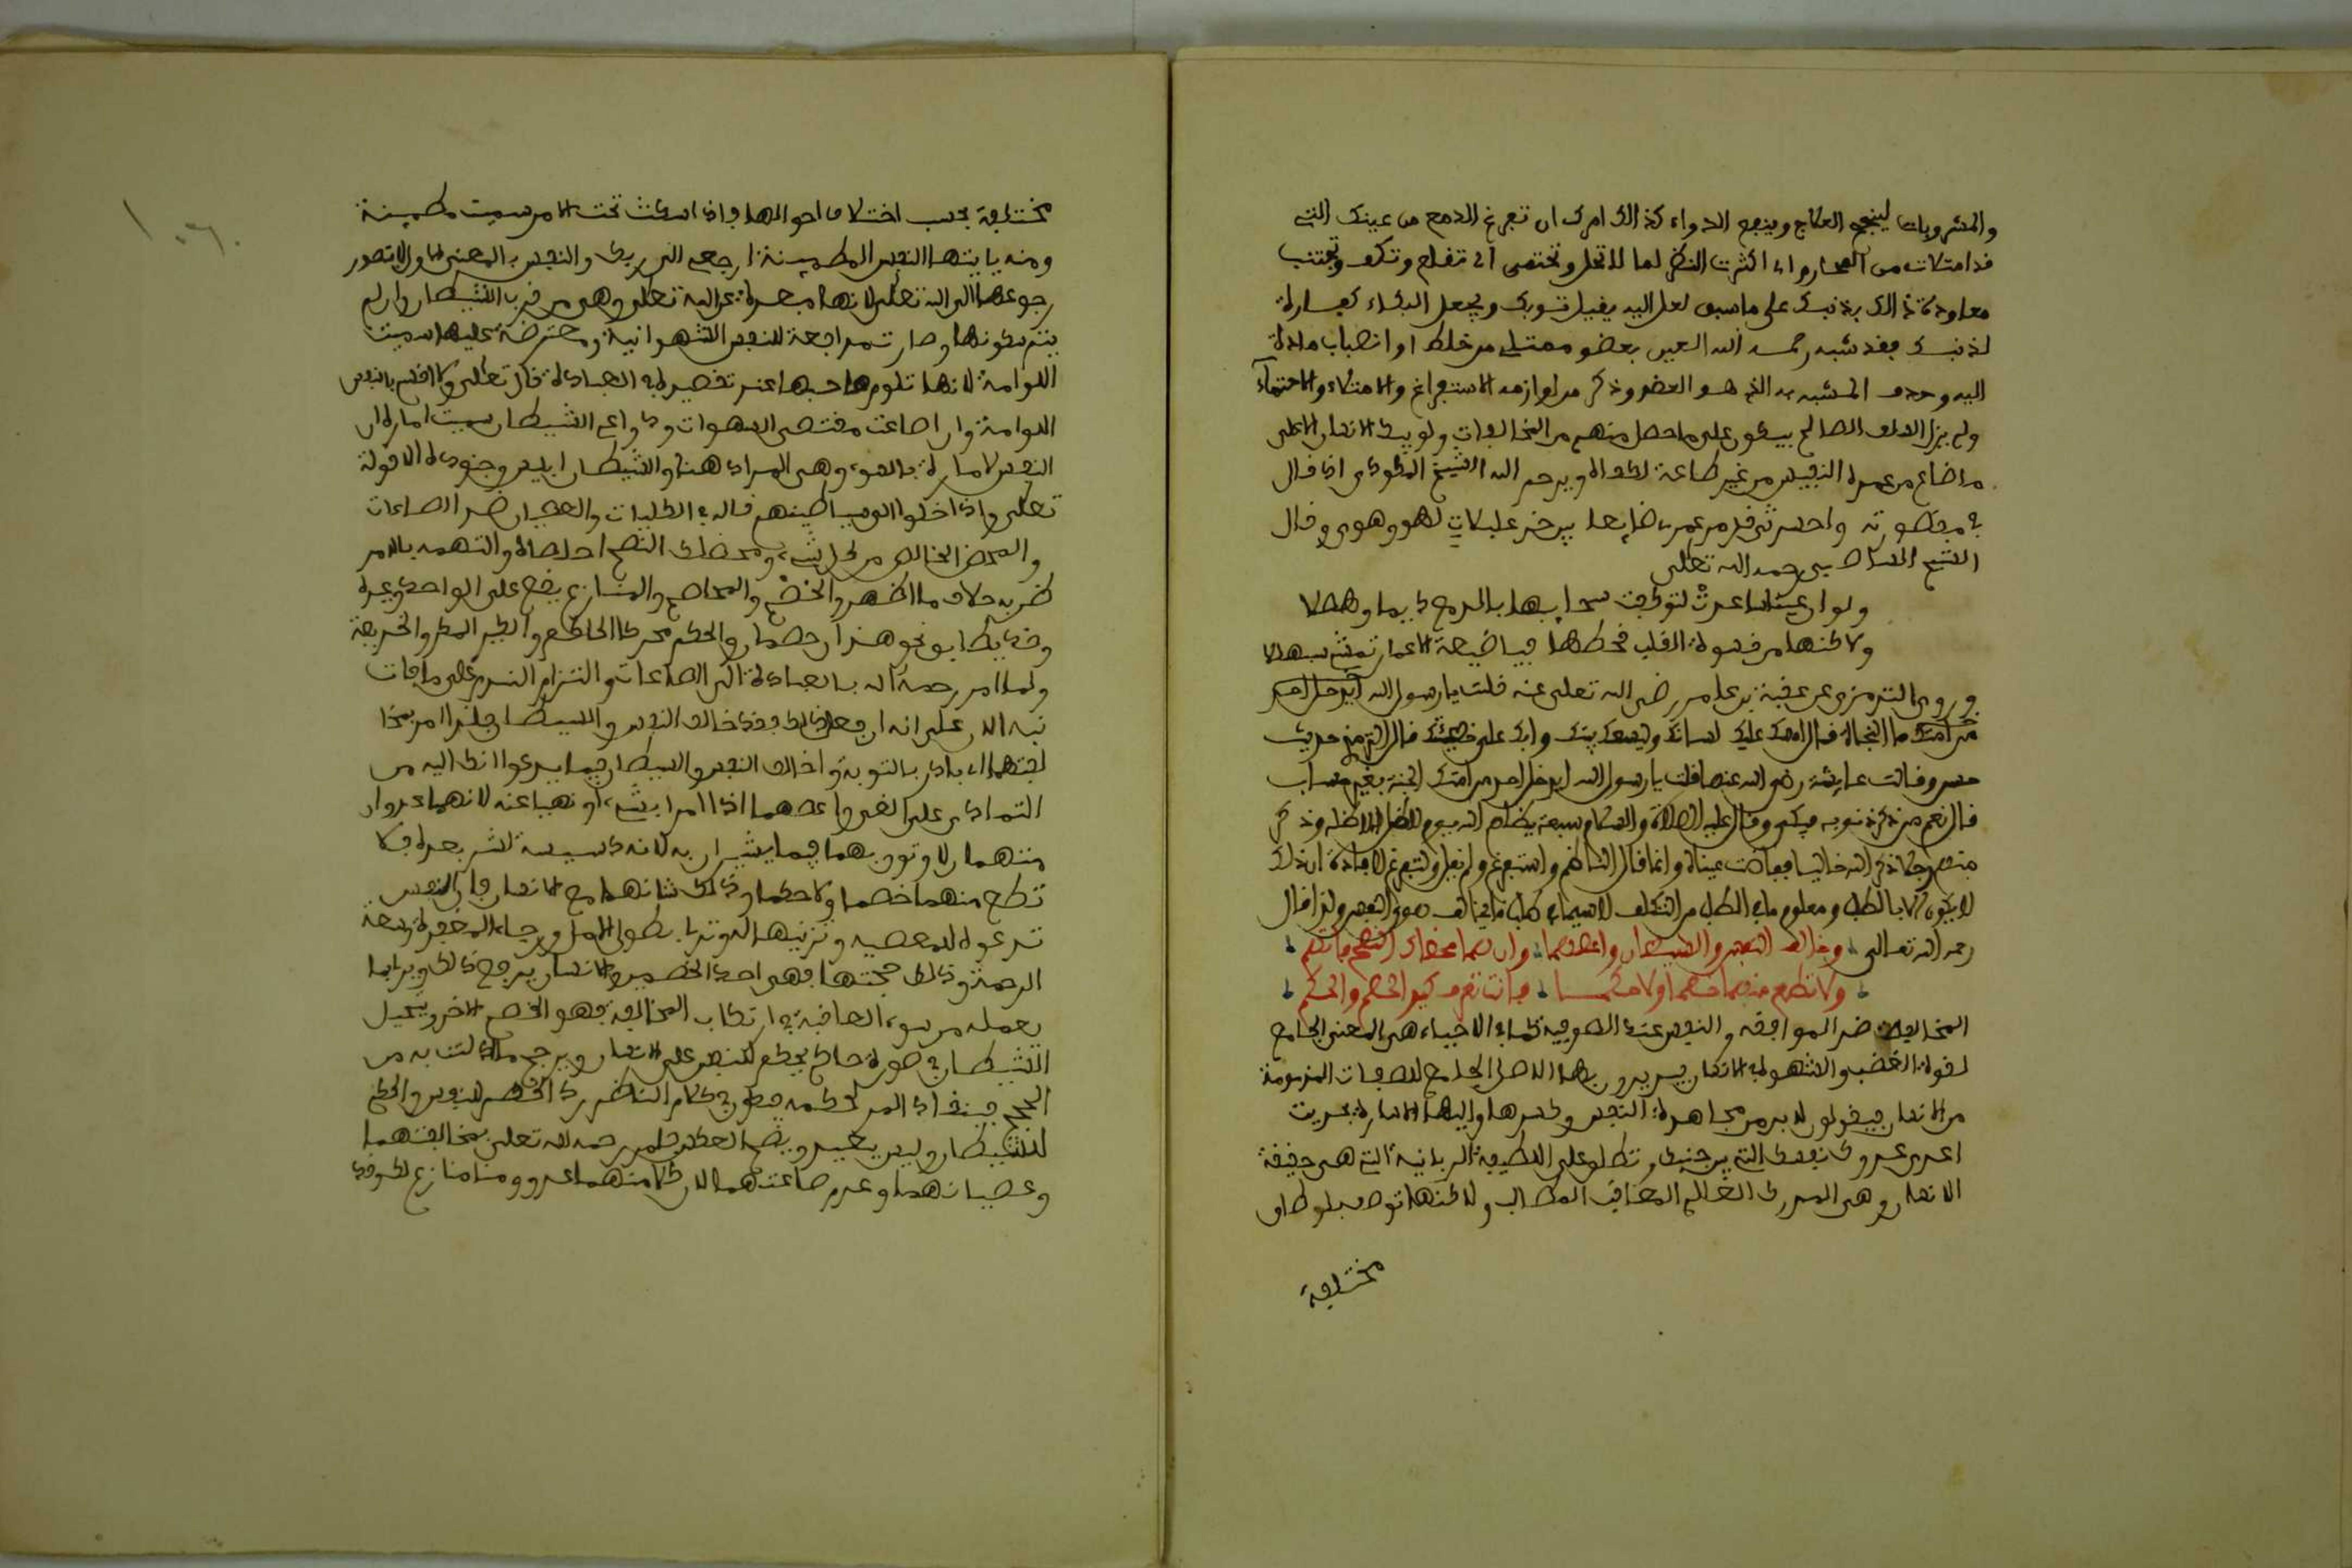 والمشروبات لينجع العلاج وينجع الدواء كذالك امرك ان تفرغ الدمع من عينك التي
قد امتلات من المحارم اي اكثرت النظر لما لا تحل وتحتمي اي تقلع وتكف وتجتنب
معاودة ذالك بذنبك على ما سبق لعل الله يقبل توبتك ويجعل البكاء كفارة
لذنبك فقد شبه رحمه الله العين بعضو ممتلئ من خلط او انصباب مادة
اليه وحذف المشبه به الذي هو العضو وذكر من لوازمه الاستفراغ والامتلاء والاحتماء
ولم يزل السلف الصالح يبكون على ما حصل منهم من المخالفات ولو يبك الانسان الا على
ما ضاع من عمره النفيس من غير طاعة لكفاه ويرحم الله الشيخ المكودي اذ قال
في مقصورته واحسرتى قد مر عمري ضايعا بين خزعبلات لهو وهوى وقال
الشيخ الشاطبي رحمه الله تعلى
ولو ان عينا ساعدت لتوكفت سحايبها بالدمع ديما وهطلا
ولاكنها من قسوة القلب قحطها فيا ضيعة الاعمار تمشي سبهللا
وروى الترمذي عن عقبة بن عامر رضي الله تعلى عنه قلت يا رسول الله
ما النجاة قال امسك عليك لسانك وليسعك بيتك وابك على خطيئتك قال الترمذي حديث
حسن وقالت عايشة رضي الله عنها قلت يا رسول الله ايدخل احد من امتك الجنة بغير حساب
قال نعم من ذكر ذنوبه فبكى وقال عليه الصلاة والسلام سبعة يظلهم الله يوم لا ظل الا ظله وذكر
منهم رجلا ذكر الله خاليا ففاضت عيناه وانما قال الناظم واستفرغ ولم يقل ولتفرغ لافادة ان ذلك
لا يكون الا بالطلب ومعلوم ما في الطلب من التكلف لاسيما في طلب ما يخالف هوى النفس ولذا قال
رحمه الله تعالى وخالف النفس والشيطان واعصهما وان هما محضاك النصح فاتهم
ولا تطع منهما خصما ولا حكما فانت تعرف كيد الخصم والحكم
المخالفة ضد الموافقة والنفس عند الصوفية كما في الاحياء هي المعنى الجامع
لقوة الغضب والشهوة في الانسان يريدون بها الاصل الجامع للصفات المذمومة
من الانسان فيقولون لا بد من مجاهدة النفس وكسرها واليها الاشارة بحديث
اعدى عدوك نفسك التي بين جنبيك وتطلق على اللطيفة الربانية التي هي حقيقة
الانسان وهي المدرك العالم المعاقب المطالب ولاكنها توصف باوصاف
مختلفة
مختلفة بحسب اختلاف احوالها فاذا سكنت تحت الامر سميت مطمئنة
ومنه يايتها النفس المطمئنة ارجعي الى ربك والنفس بالمعنى الاول لا تتصور
رجوعها الى الله تعلى لانها مبعدة عن الله تعلى وهي من حزب الشيطان وان لم
يتم سكونها وصارت مدافعة للنفس الشهوانية ومعترضة عليها سميت
اللوامة لانها تلوم صاحبها عند تقصيره في العبادة قال تعلى ولا اقسم بالنفس
اللوامة وان اطاعت مقتضى الشهوات ودواعي الشيطان سميت امارة ان
النفس لامارة بالسوء وهي المراد هنا والشيطان ابليس وجنوده لقوله
تعلى واذا خلوا الى شياطينهم قاله في الكليات والعصيان ضد الطاعة
والمحض الخالص من كل شيء ومحضك النصح اخلصه والتهمة بالامر
ظن به خلاف ما اظهر والخصم المخاصم والمنازع يقع على الواحد وغيره
وقد يطابق نحو هذان خصمان والحكم محركا الحاكم والكيد المكر والخديعة
ولما امر رحمه الله بالمبادرة الى الطاعات والتزام الندم على ما فات
نبه الان على انه ان فعل ذالك فقد خالف النفس والشيطان فلذا امر بمخا
لفتهما اي بادر بالتوبة وخالف النفس والشيطان فيما يدعوانك اليه من
التمادي على الغي واعصهما اذا امرا بشيء او نهيا عنه لانهما عدوان
متهمان لا وثوق بهما فيما يشيران به لانه دسيسة لشر بعده فلا
تطع منهما خصما ولا حكما وذالك شانهما مع الانسان فان النفس
تدعوه للمعصية وتزينها له وتريه طول الامل ورجاء المغفرة وسعة
الرحمة وذالك حجتها فهي احد الخصمين والانسان يدفع ذالك ويرى ما
يعمله من سوء العاقبة في ارتكاب المخالفة فهو الخصم الاخر ويتخيل
الشيطان في صورة حاكم يحكم للنفس على الانسان ويرجح ما اتت به من
الحجج فينقاد المرء لحكمه فيكون في كلام الناظم رد الخصم للنفس والحكم
للشيطان وليس بتعيين ويصح العكس فلمن رحمه الله تعلى بمخالفتهما
وعصيانهما وعدم طاعتهما لان كلا منهما عدو ومنازع لك وقد